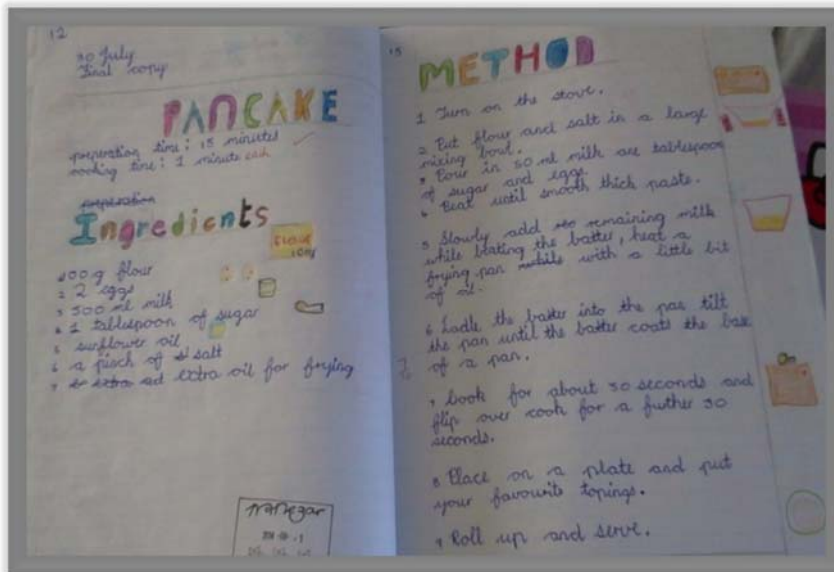 12
30 July
Final copy
PANCAKE
preperation time: 15 minutes
cooking time: 1 minute each
preperation
Ingredients
FLOUR
200 g flour
2 2 eggs
3 300 ml milk
4 1 tablespoon of sugar
5 sunflower oil
6 a pinch of salt
7 extra oil for frying
13
METHOD
1 Turn on the stove.
2 Put flour and salt in a large
mixing bowl.
3 Pour in 50 ml milk tablespoon
of sugar and eggs
4 Beat until smooth thick paste.
5 Slowly add remaining milk
while beating the batter, heat a
frying pan with a little bit
of oil.
6 Ladle the batter into the pan tilt
the pan until the batter coats the base
of a pan.
7 Cook for about 30 seconds and
flip over cook for a further 30
seconds.
8 Place on a plate and put
your favourite topings.
9 Roll up and serve.